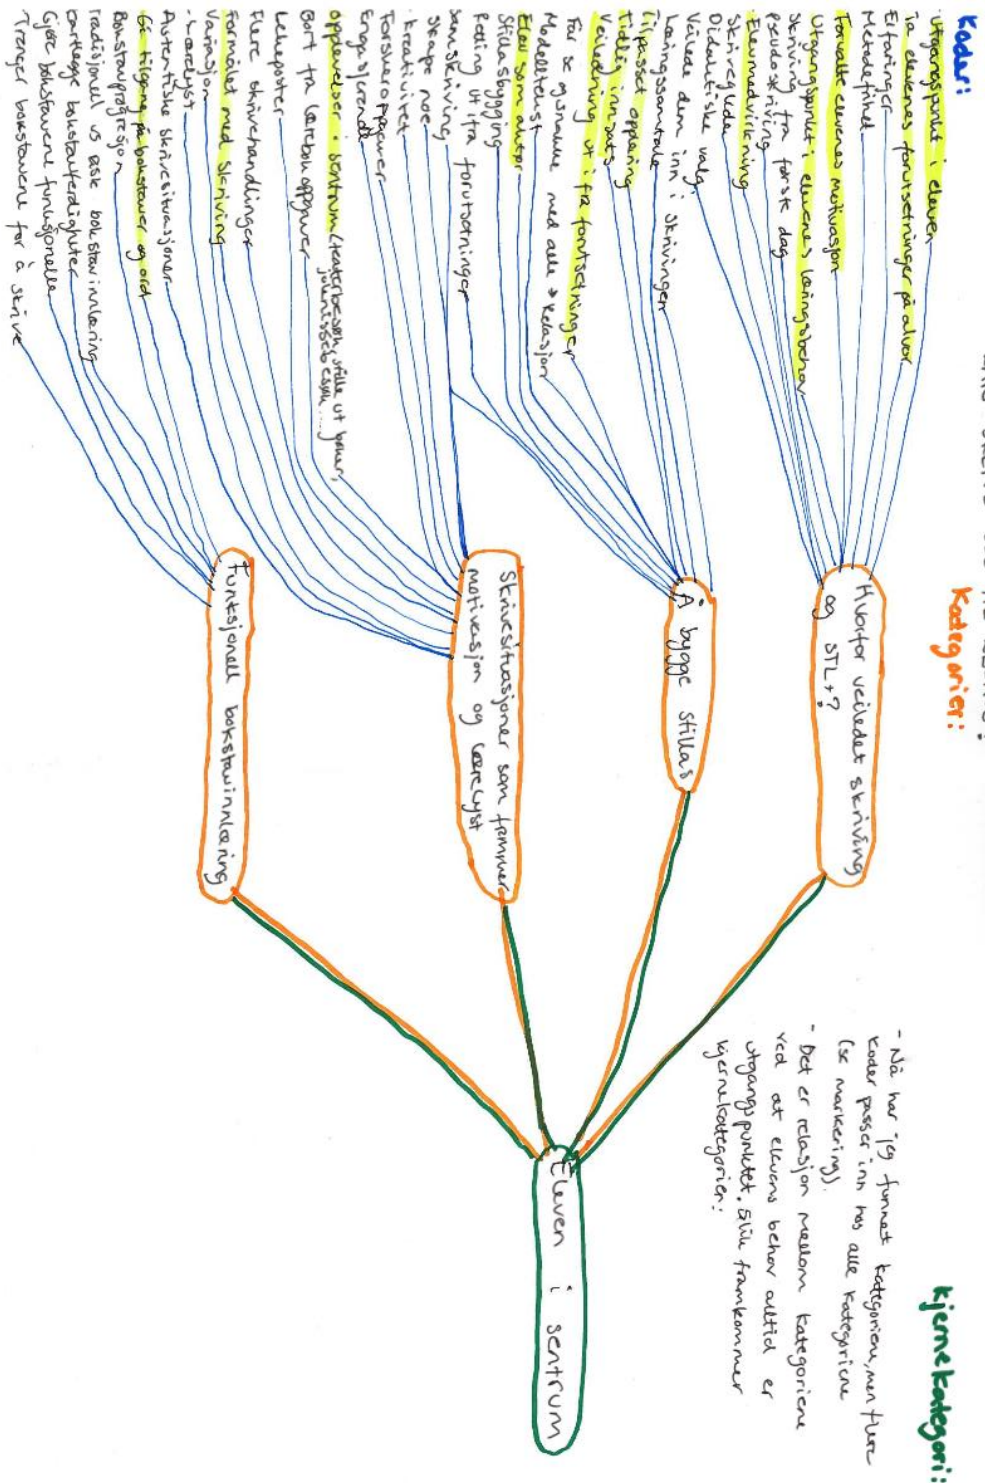 Koder:
- Utgangspunkt i eleven
Ta elevenes forutsetninger på alvor
Erfaringer
Metodefrihet
Forvalte elevenes motivasjon
Utgangspunkt i elevenes læringsbehov
Skriving fra første dag
Pseudoskriving
Elevmedvirkning
Skriveglede
Didaktiske valg
Veilede dem inn i skrivingen
Læringssamtale
Tilpasset opplæring
Tidlig innsats
Veiledning ut i fra forutsetninger
Får se og snakke med alle → relasjon
Modelltekst
Elev som aktør
Stillasbygging
Retting ut ifra forutsetninger
Samskriving
Skape noe
Kreativitet
Forskeroppgaver
Engasjerende
Opplevelser i sentrum (teaterbesøk, stille ut bøker,
julenissebesøk...
Bort fra lærebokoppgaver
Lekeposter
Flere skrivehandlinger
Formålet med skriving
Variasjon
- Lærelyst
Autentiske skrivesituasjoner
Gi tilgang på bokstaver og ord
Bokstavprogresjon
Tradisjonell vs rask bokstavinnlæring
Kartlegge bokstavferdigheter
Gjøre bokstavene funksjonelle
Trenger bokstavene for å skrive
Kategorier:
Hvorfor veiledet skriving
og STL+?
Å bygge stillas
Skrivesituasjoner som fremmer
motivasjon og lærelyst
Funksjonell bokstavinnlæring
kjernekategori:
- Nå har jeg funnet kategoriene, men flere
koder passer inn hos alle kategoriene
(se markering).
- Det er relasjon mellom kategoriene
ved at elevens behov alltid er
utgangspunktet. Slik framkommer
kjernekategorien:
Eleven i sentrum